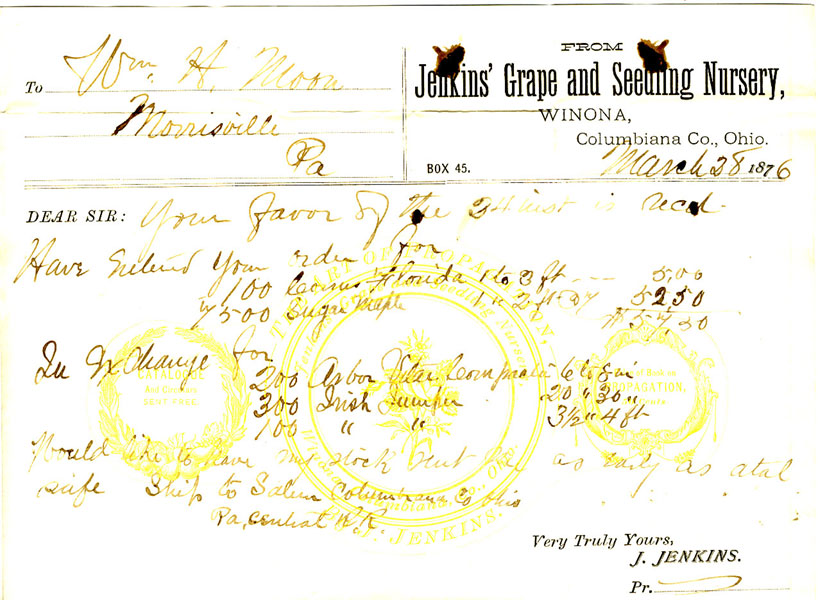 To Wm. H. Moon
Morrisville
Pa
FROM
Jenkins' Grape and Seedling Nursery,
WINONA,
Columbiana Co., Ohio.
BOX 45.
March 28 1876
DEAR SIR: Your favor of the 24 inst is recd.
Have Entered your order for
100 Cornus Florida 1 to 3 ft --- 5,00
7500 Sugar Maple 1 to 2 ft 52 50
$57,50
In Exchange for
200 Arbor Vitae Compacta 6 to 9 in
300 Irish Juniper 20 " 30 "
100 " " 3½ " 4 ft
Would like to have my stock sent here as early as atal
safe Ship to Salem Columbiana Co Ohio
Pa, central R.R.
SENT FREE.
PROPAGATION.
J. JENKINS.
Very Truly Yours,
J. JENKINS.
Pr.